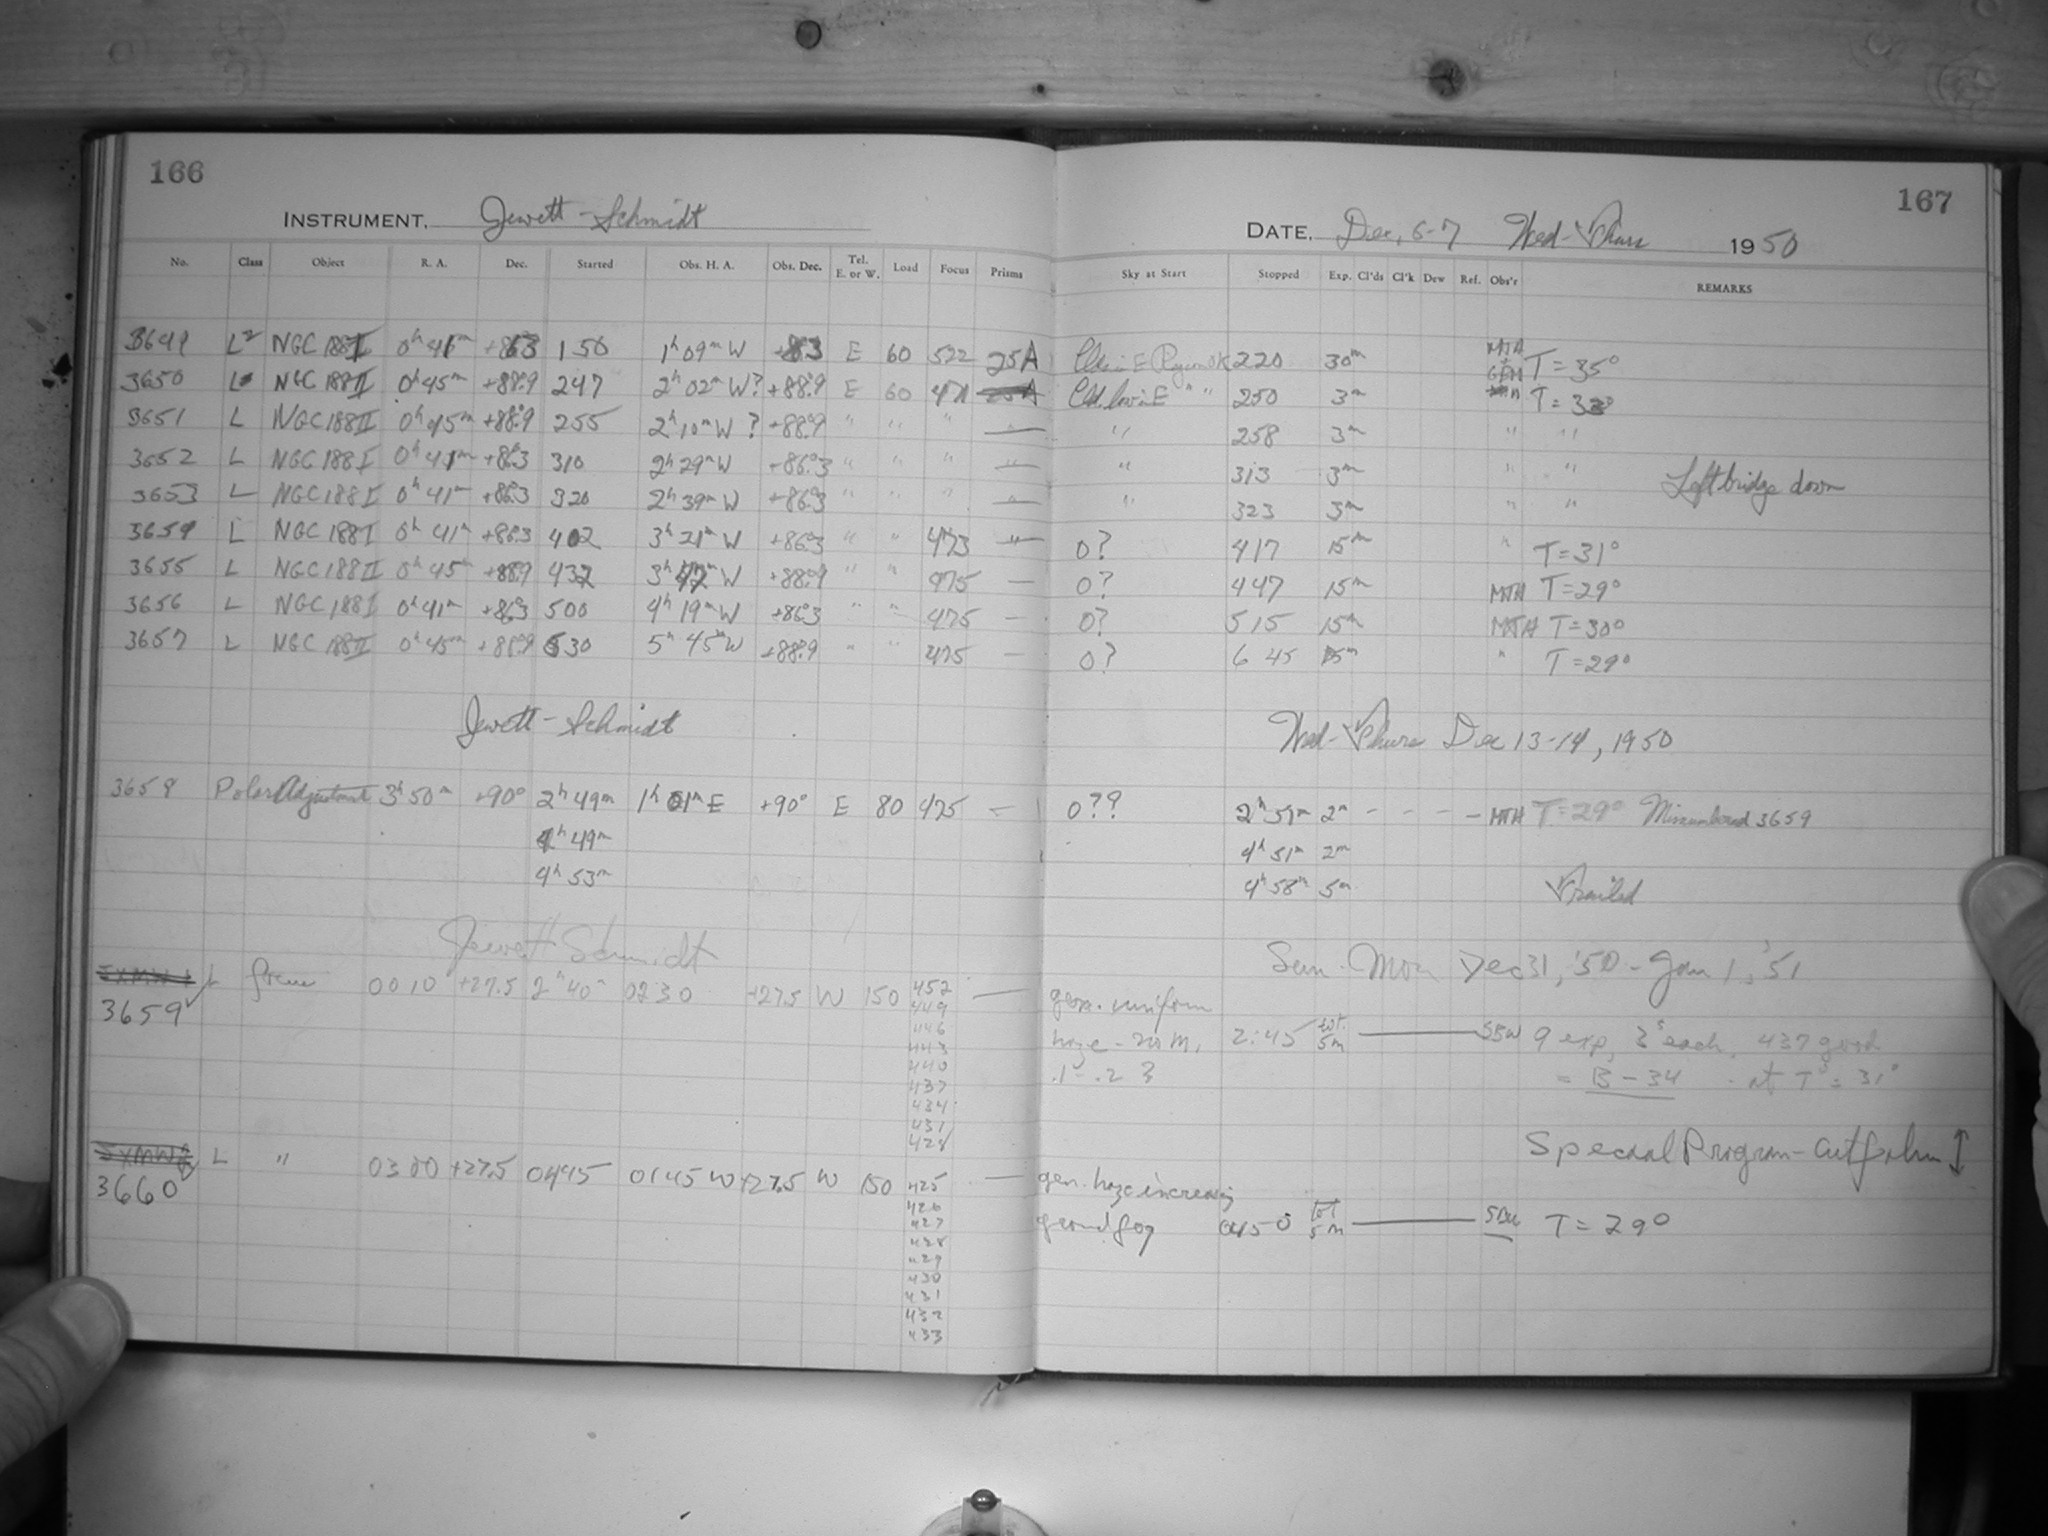 166
INSTRUMENT, Jewett-Schmidt
No. Class Object R. A. Dec. Started Obs. H. A. Obs. Dec. Tel. E. or W. Load Focus Prisms
3649 L NGC 188 I 0h 41m +86.3 150 1h 09m W E 60 522 25A
3650 L NGC 188 II 0h 45m +88.9 247 2h 02m W? +88.9 E 60 471
3651 L NGC 188 II 0h 45m +88.9 255 2h 10m W ? +88.9 " " " —
3652 L NGC 188 I 0h 41m +86.3 310 2h 29m W +86.3 " " " —
3653 L NGC 188 I 0h 41m +86.3 320 2h 39m W +86.3 " " " —
3654 L NGC 188 I 0h 41m +86.3 402 3h 21m W +86.3 " " 473 —
3655 L NGC 188 II 0h 45m +88.9 432 3h 47m W +88.9 " " 475 —
3656 L NGC 188 I 0h 41m +86.3 500 4h 19m W +86.3 " " 475 —
3657 L NGC 188 II 0h 45m +88.9 630 5h 45m W +88.9 " " 475 —
Jewett-Schmidt
3659 Polar Adjustment 3h 50m +90° 2h 49m 1h 01m E +90° E 80 475 —
4h 49m
4h 53m
Jewett Schmidt
L focus 0010 +27.5 2h 40m 0230 +27.5 W 150 452 —
3659 449
446
443
440
437
434
431
428
L " 0300 +27.5 0445 0145 W +27.5 W 150 425 —
3660 426
427
428
429
430
431
432
433
167
DATE, Dec, 6-7 Wed-Thurs 1950
Sky at Start Stopped Exp. Cl'ds Cl'k Dew Ref. Obs'r REMARKS
220 30m MJA GFM T = 35°
Cld. low in E " " 250 3m T = 33°
" 258 3m " "
" 313 3m " "
Left bridge down
" 323 3m " "
0? 417 15m " T = 31°
0? 447 15m MTH T = 29°
0? 515 15m MTH T = 30°
0? 645 15m " T = 29°
Wed-Thurs Dec 13-14, 1950
0?? 2h 51m 2m - - - - MTH T = 29° Misnumbered 3659
4h 51m 2m
4h 58m 5m Trailed
Sun-Mon Dec 31, '50 - Jan 1, '51
gen. uniform
haze - no M, 2:45 tot. 5m — SBW 9 exp, 3s each, 437 good
.1 - .2 ? = B - 34 - at T = 31°
Special Program - cut film
gen. haze increasing
ground fog 0450 tot 5m — SBW T = 29°